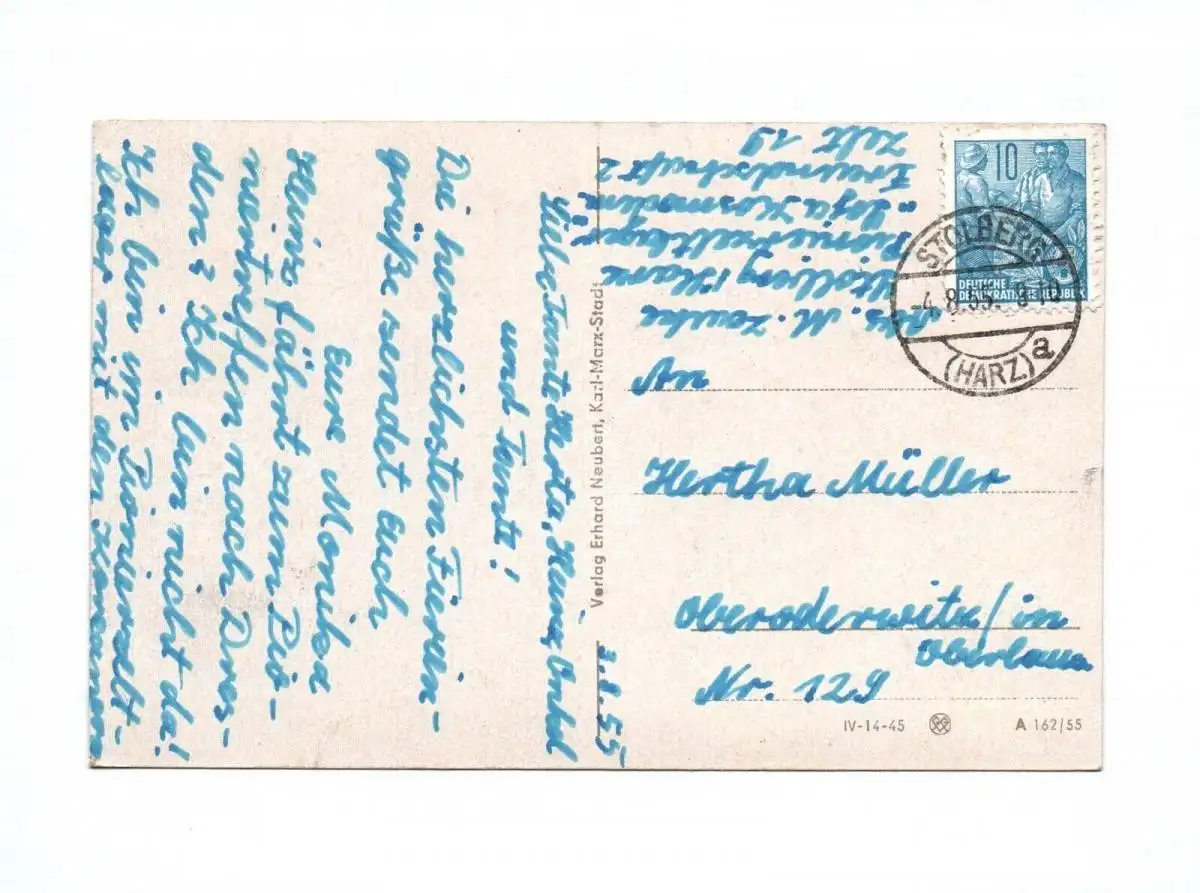 3.8.55
Liebe Tante Herta, Heinz, Onkel
und Tant!
Die herzlichsten Ferien-
grüße sendet Euch
Eure Monika
Heinz fährt zum Pio-
niertreffen nach Dres-
den? Ich bin nicht da!
Ich bin im Pionierzelt-
lager mit den
Abs. M.
Stolberg/Harz
Pionierzeltlager
"Soja Kosmodem
Freundschaft 2
Zelt 19
10
DEUTSCHE
DEMOKRATISCHE REPUBLIK
STOLBERG
-4.8.55.
(HARZ)
a
An
Hertha Müller
Oberoderwitz/im
Oberlaus
Nr. 129
Verlag Erhard Neubert, Karl-Marx-Stadt
IV-14-45
A 162/55